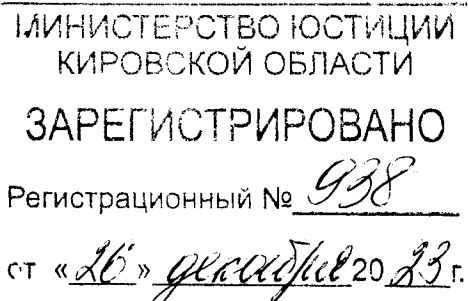 МИНИСТЕРСТВО ЮСТИЦИИ
КИРОВСКОЙ ОБЛАСТИ
ЗАРЕГИСТРИРОВАНО
Регистрационный № 938
от «26» декабря 2023 г.